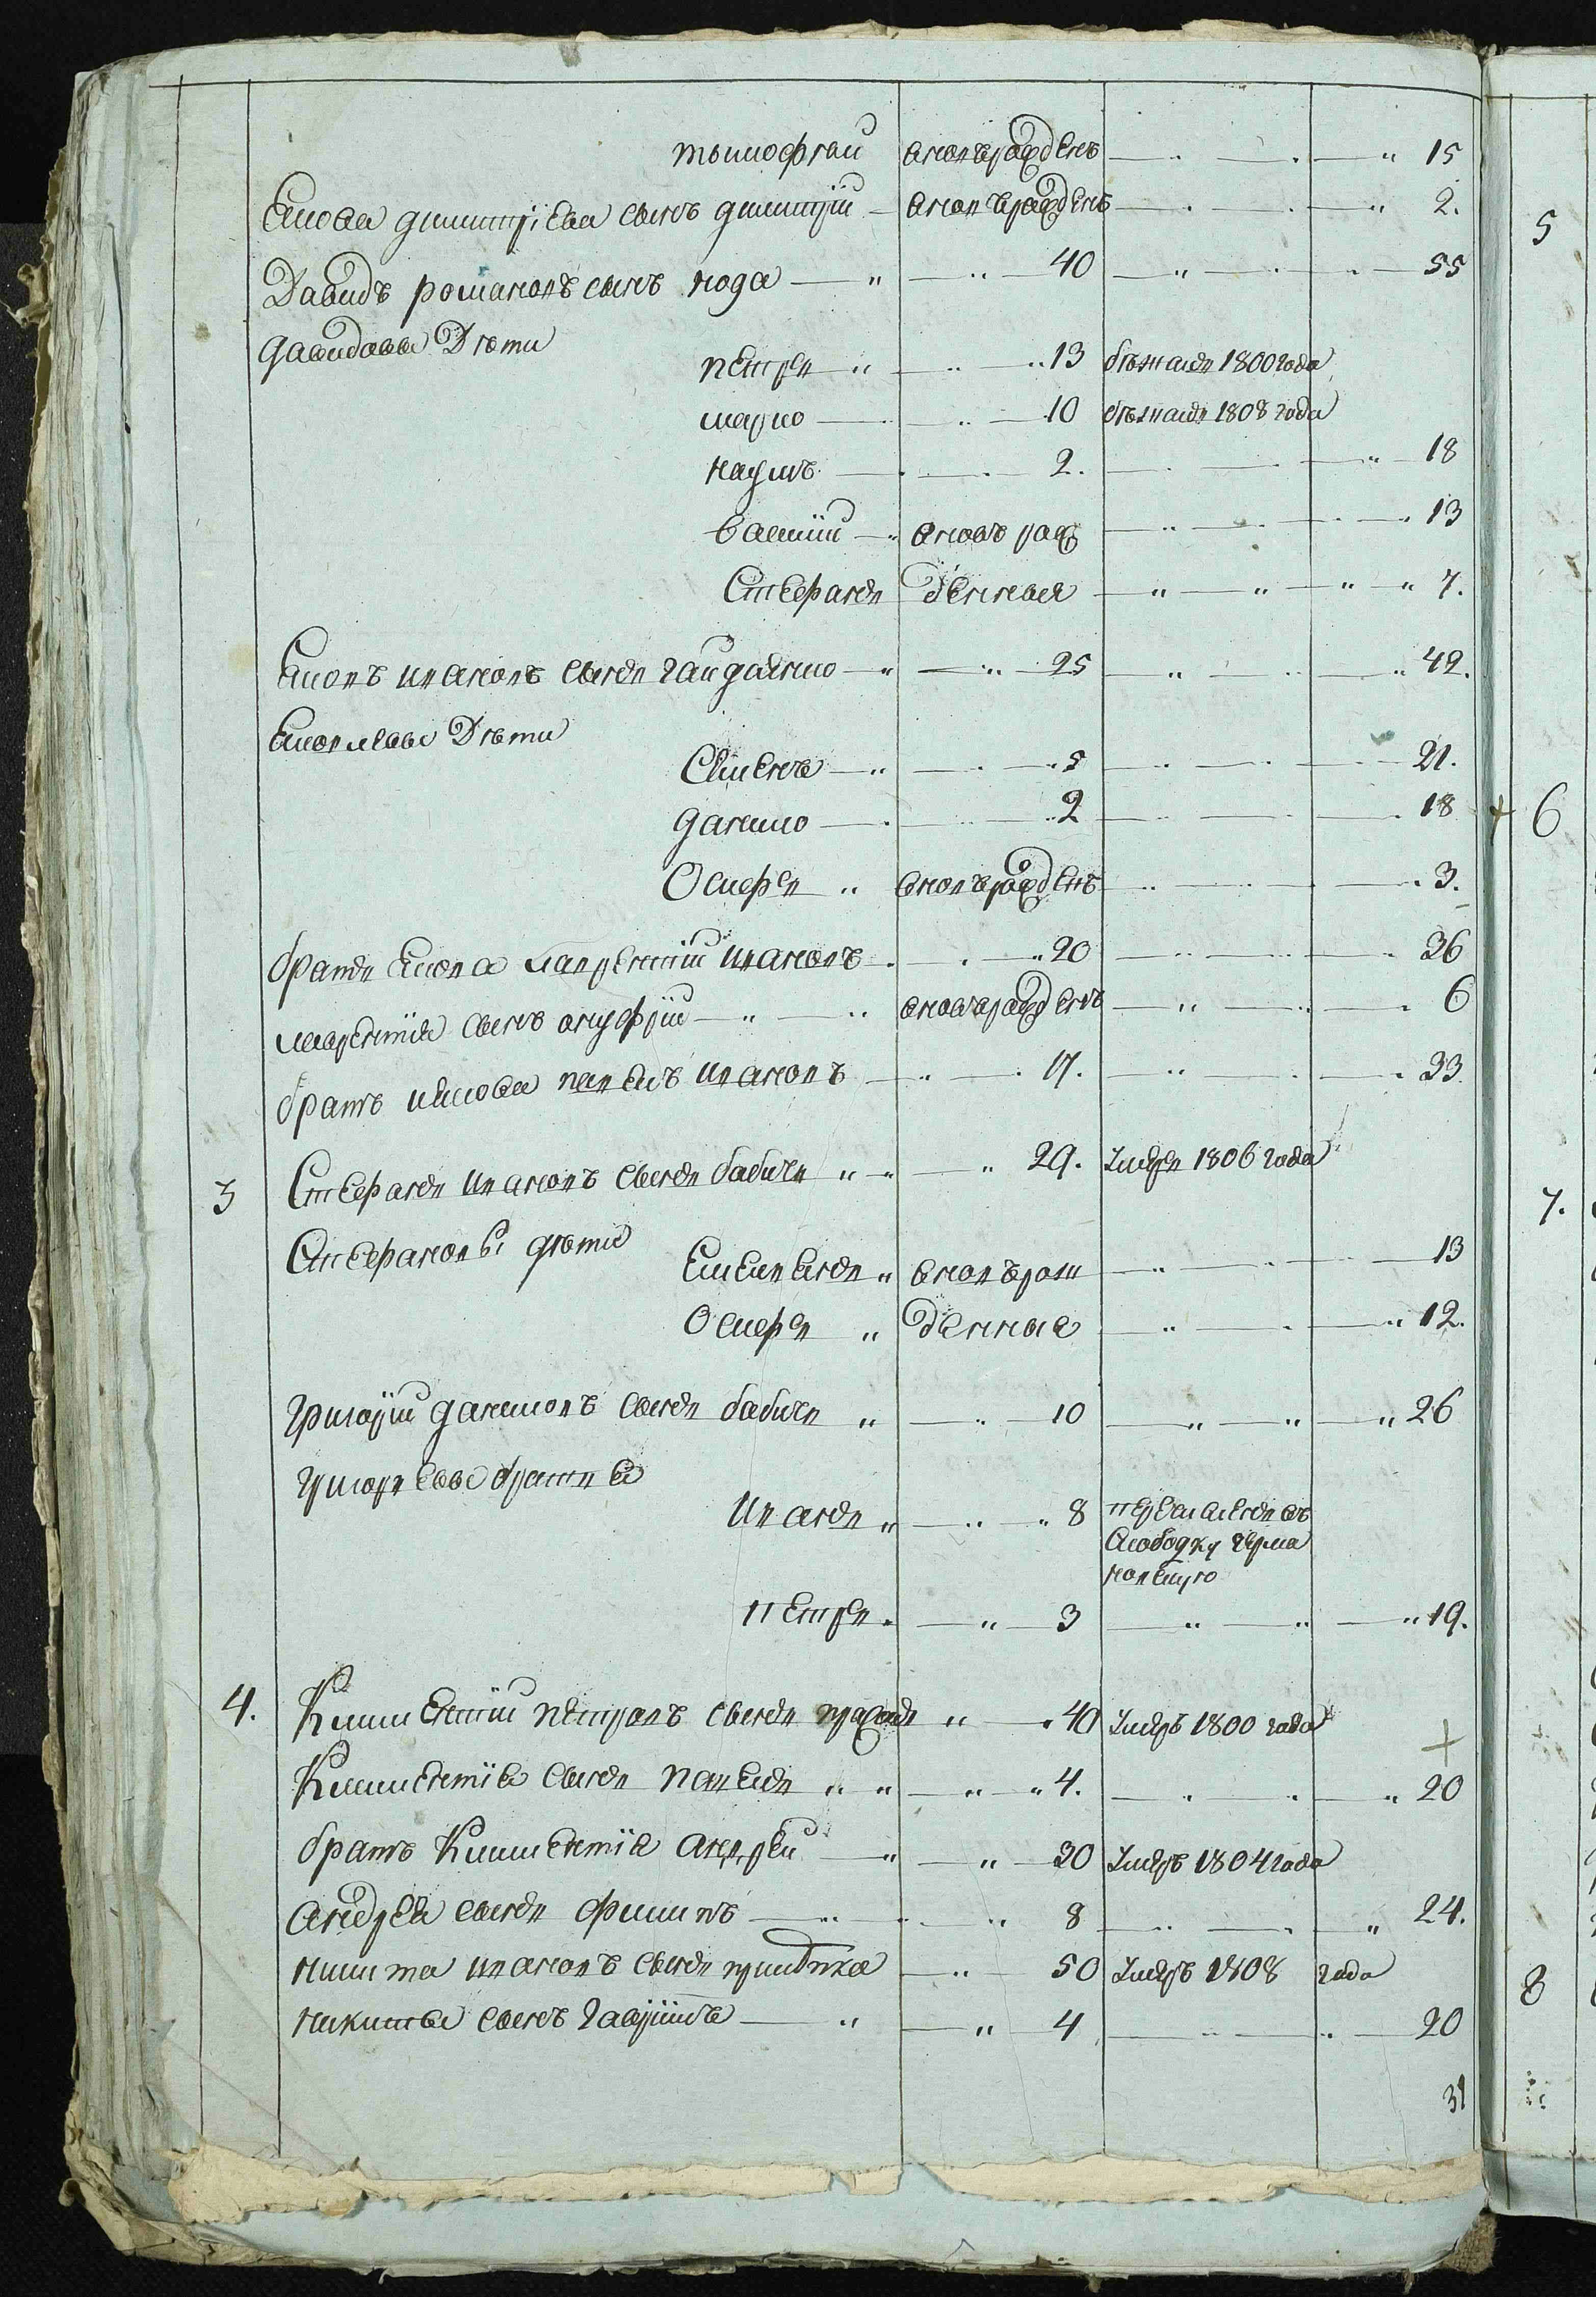 тымофѣй вновърожденъ 15
Якова дмитріева сынъ дмитрій вновърожденъ 2.
Давидъ романовъ сынъ кода 40 55
давидовы Дѣти
петръ 13 бѣжалъ 1800 года
марко 10 бѣжалъ 1808 года
наумъ 2. 18
василій вновъ рож 13
Стефанъ денныя 7.
Яковъ ивановъ сынъ гайдаенко 25 42.
Яковлевы Дѣти
Семенъ 5 21.
данило 2 18
Осифъ вновърожденъ 3.
братъ Якова лаврентій ивановъ 20 36
лаврентія сынъ онуфрій вновърожденъ 6
братъ якова павелъ ивановъ 17. 33
3 Стефанъ ивановъ сынъ бабичъ 29. Умеръ 1806 года
Стефановы дѣти
вновърож 13
Осифъ денные 12.
григорій даниловъ сынъ бабичъ 10 26
григорьевы братья
иванъ 8 переселенъ въ
слободку
петръ 3 19.
4. Климентій петровъ сынъ 40 Умеръ 1800 года
Климентія сынъ павелъ 4. 20
братъ Климентія андрей 30 Умеръ 1804 года
андрея сынъ филипъ 8 24.
никита ивановъ сынъ 50 Умеръ 1808 года
никиты сынъ гаврилъ 4 20
31
5
6
7.
8